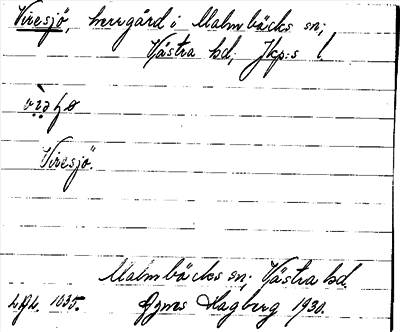 Viresjö, herrgård i Malmbäcks sn;
Västra hd; Jkp:s l.
Viresjö.
Malmbäcks sn; Västra hd
1035. Agnes Hagberg 1930.